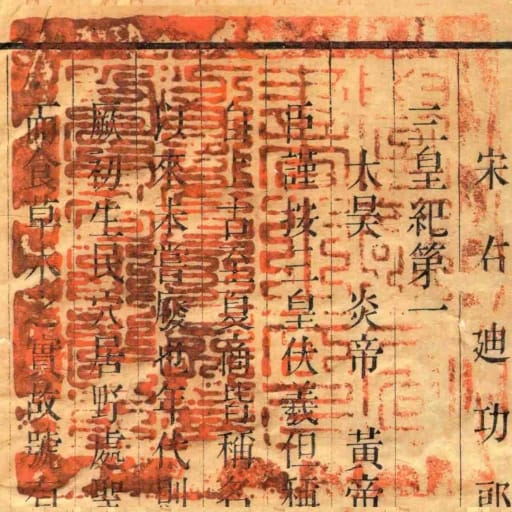 宋右迪功郎
三皇紀第一
太昊 炎帝 黃帝
臣謹按三皇伏羲但稱
自上古至夏商皆稱名
以來未嘗廢也年代則
厥初生民穴居野處聖
而食草木之實故號有